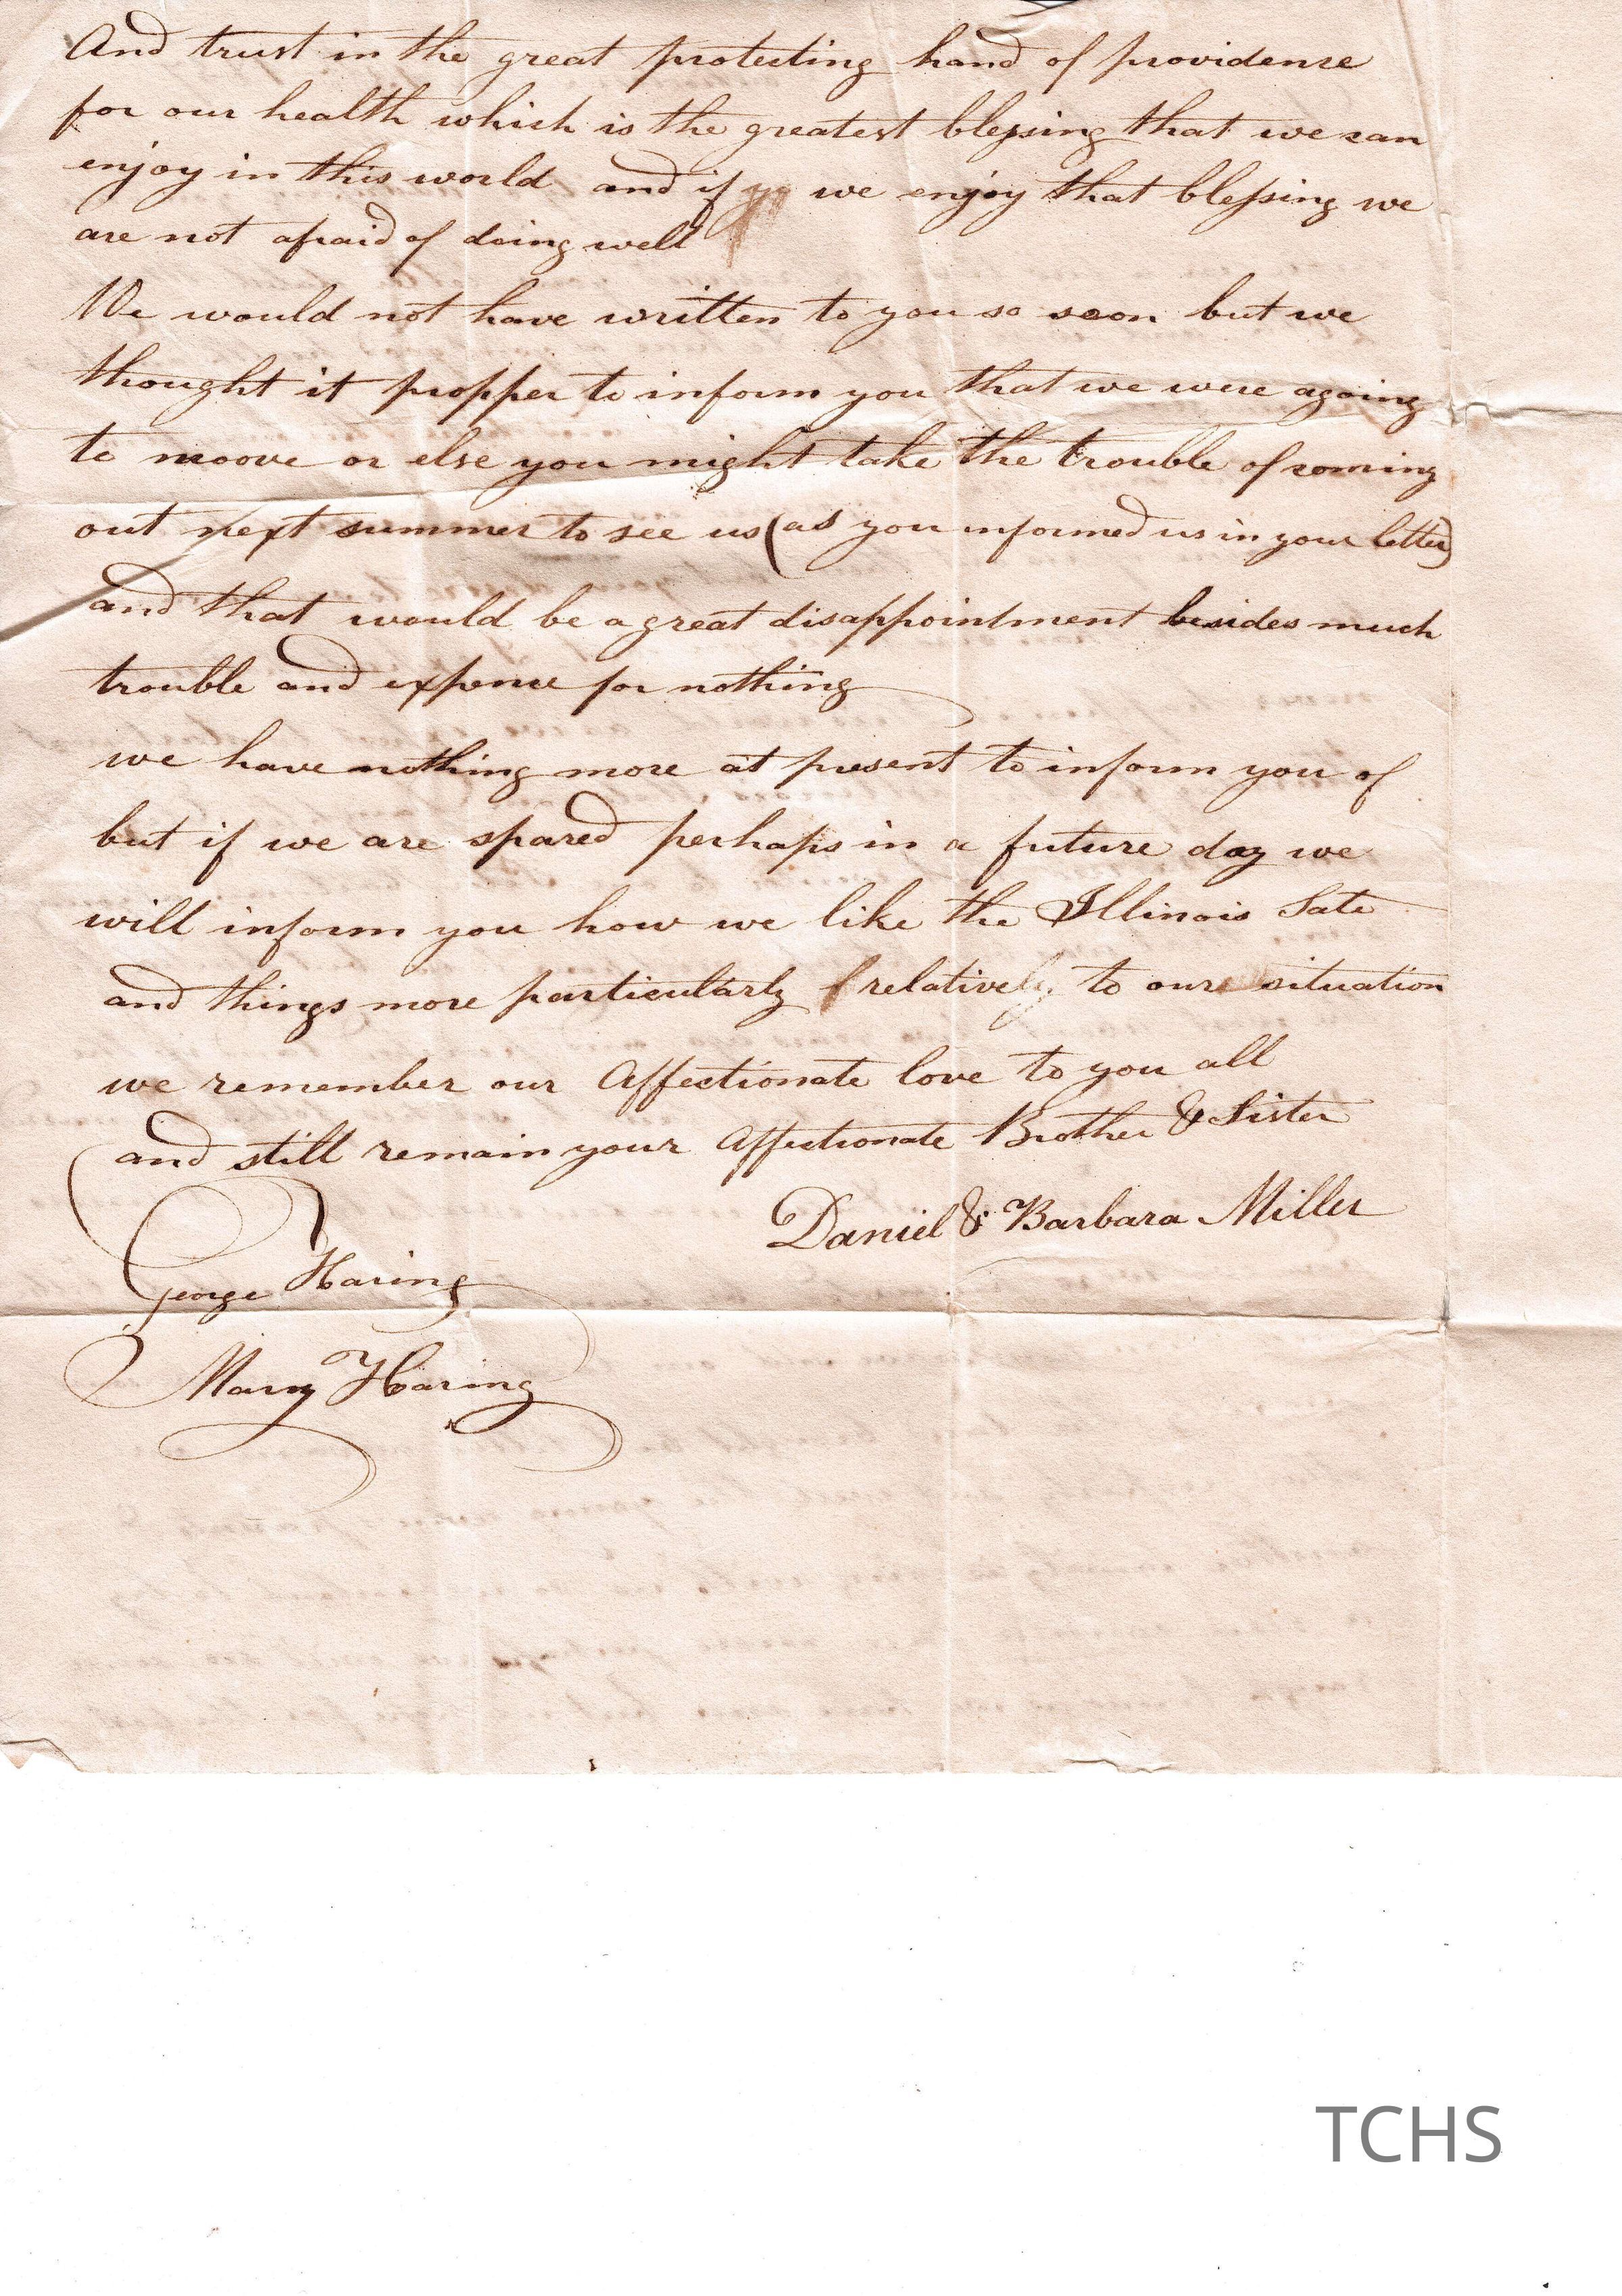 And trust in the great protecting hand of providence
for our health which is the greatest blessing that we can
enjoy in this world and if yo we enjoy that blessing we
are not afraid of doing well
We would not have written to you so soon but we
thought it propper to inform you that we were agoing
to moove or else you might take the trouble of coming
out next summer to see us (as you informed us in your letter)
and that would be a great disappointment besides much
trouble and expence for nothing
we have nothing more at present to inform you of
but if we are spared perhaps in a future day we
will inform you how we like the Illinois Sate
and things more particularly relatively to our situation
we remember our Affectionate love to you all
and still remain your Affectionate Brother & Sister
Daniel & Barbara Miller
George Haring
Mary Haring
TCHS